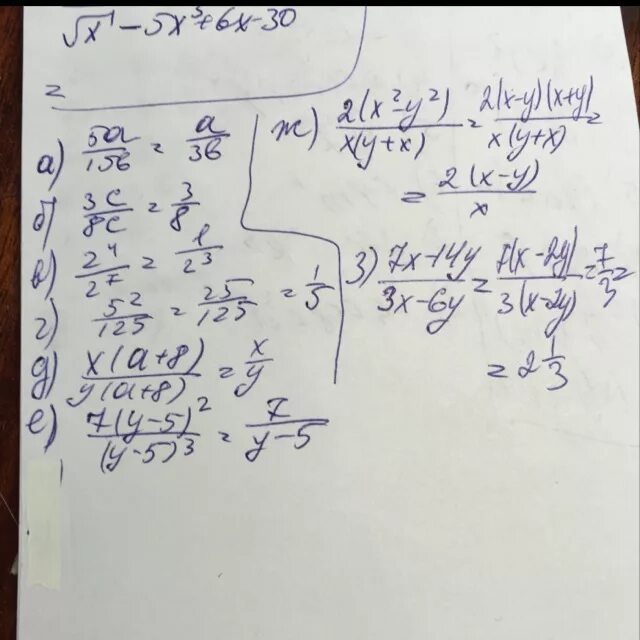 √x¹ - 5x³ + 6x - 30
=
а) 5a/15б = a/3б
б) 3c/8c = 3/8
в) 2⁴/2⁷ = 1/2³
г) 5²/125 = 25/125 = 1/5
д) x(a+8)/y(a+8) = x/y
е) 7(y-5)²/(y-5)³ = 7/y-5
ж) 2(x²y²)/x(y+x) = 2(x-y)(x+y)/x(y+x) =
= 2(x-y)/x
з) 7x-14y/3x-6y = 7(x-2y)/3(x-2y) = 7/3 =
= 2 1/3